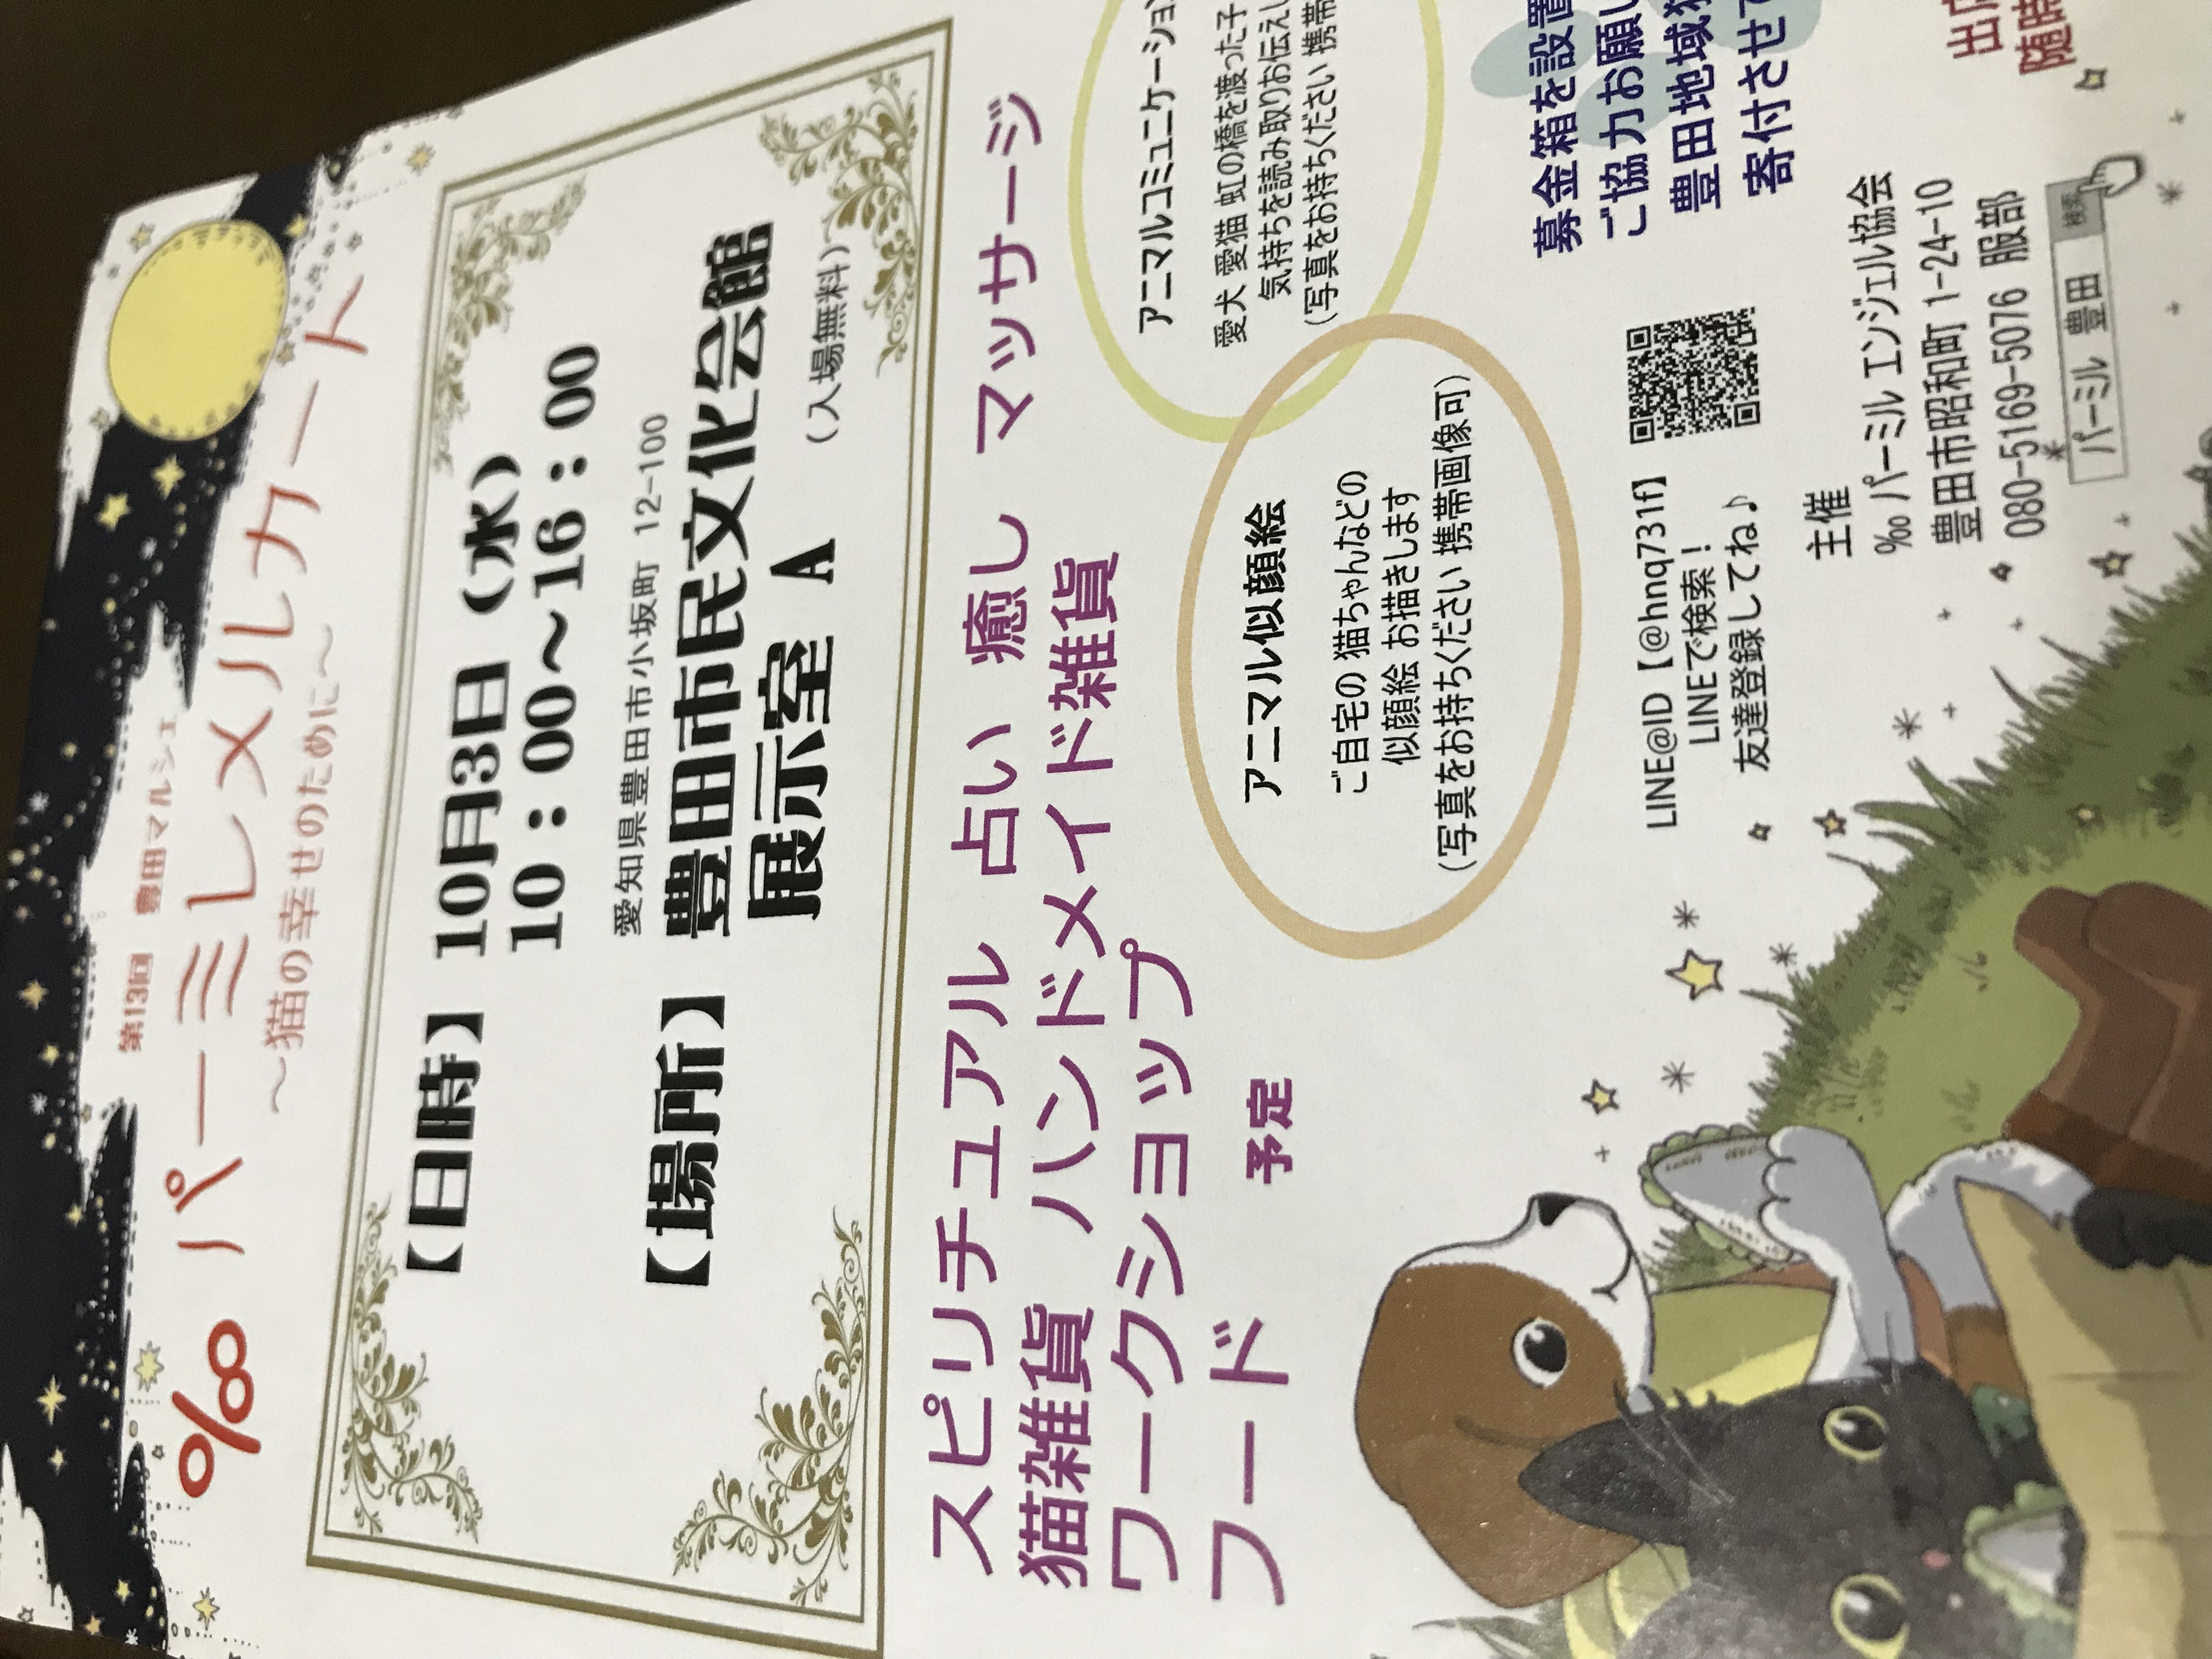 第13回 豊田マルシェ
‰ パーミレメルカート
～猫の幸せのために～
【日時】 10月3日（水）
10：00～16：00
愛知県豊田市小坂町 12-100
【場所】 豊田市民文化会館
展示室 A （入場無料）
スピリチュアル 占い 癒し マッサージ
猫雑貨 ハンドメイド雑貨
ワークショップ
フード 予定
アニマル似顔絵
ご自宅の 猫ちゃんなどの
似顔絵 お描きします
（写真をお持ちください 携帯画像可）
アニマルコミュニケーション
愛犬 愛猫 虹の橋を渡った子
気持ちを読み取りお伝えし
（写真をお持ちください 携帯
LINE@ID【@hnq731f】
LINEで検索！
友達登録してね♪
募金箱を設置
ご協力お願い
豊田地域猫
寄付させて
主催
‰ パーミル エンジェル協会
豊田市昭和町 1-24-10
080-5169-5076 服部
パーミル 豊田 検索
出店
随時